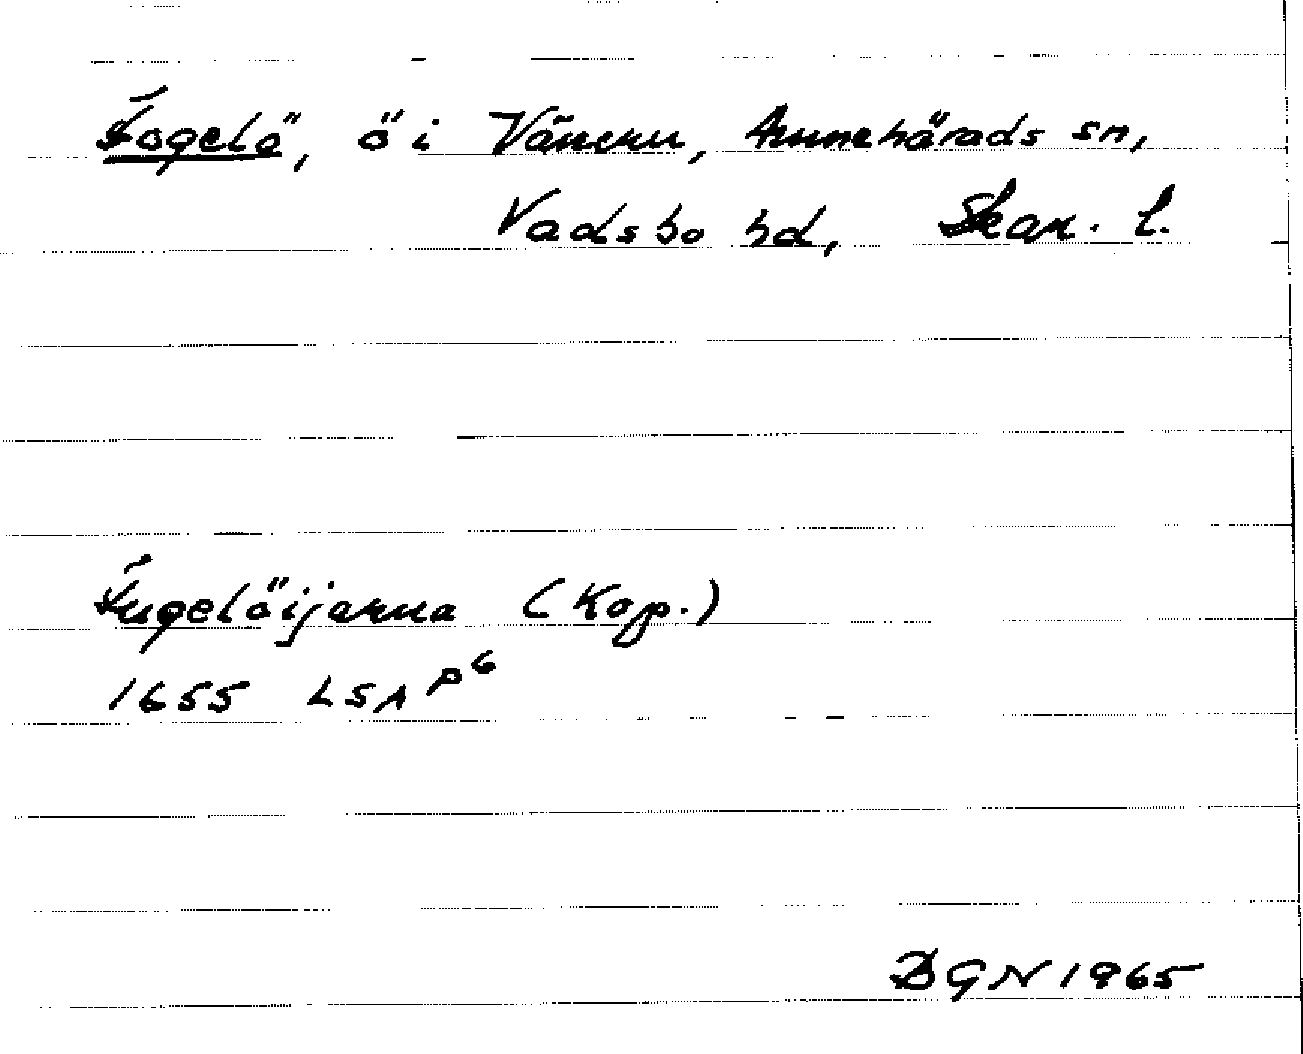 Fogelö, ö i Vänern, Amnehärads sn,
Vadsbo hd, Skar. l.
Fugelöijarna (Kop.)
1655 LSA P6
BGN 1965